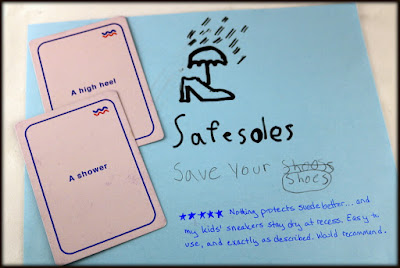 A high heel
A shower
Safesoles
Save Your
Shoes
★★★★★ Nothing protects suede better... and
my kids' sneakers stay dry at recess. Easy to
use, and exactly as described. Would recommend.